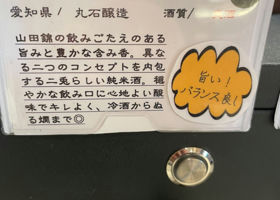 愛知県/ 丸石醸造 酒質/
山田錦の飲みごたえのある
旨みと豊かな含み香。異な
る二つのコンセプトを内包
する二兎らしい純米酒。穏
やかな飲み口に心地よい酸
味でキレよく、冷酒からぬ
る燗まで◎
旨い！
バランス良し